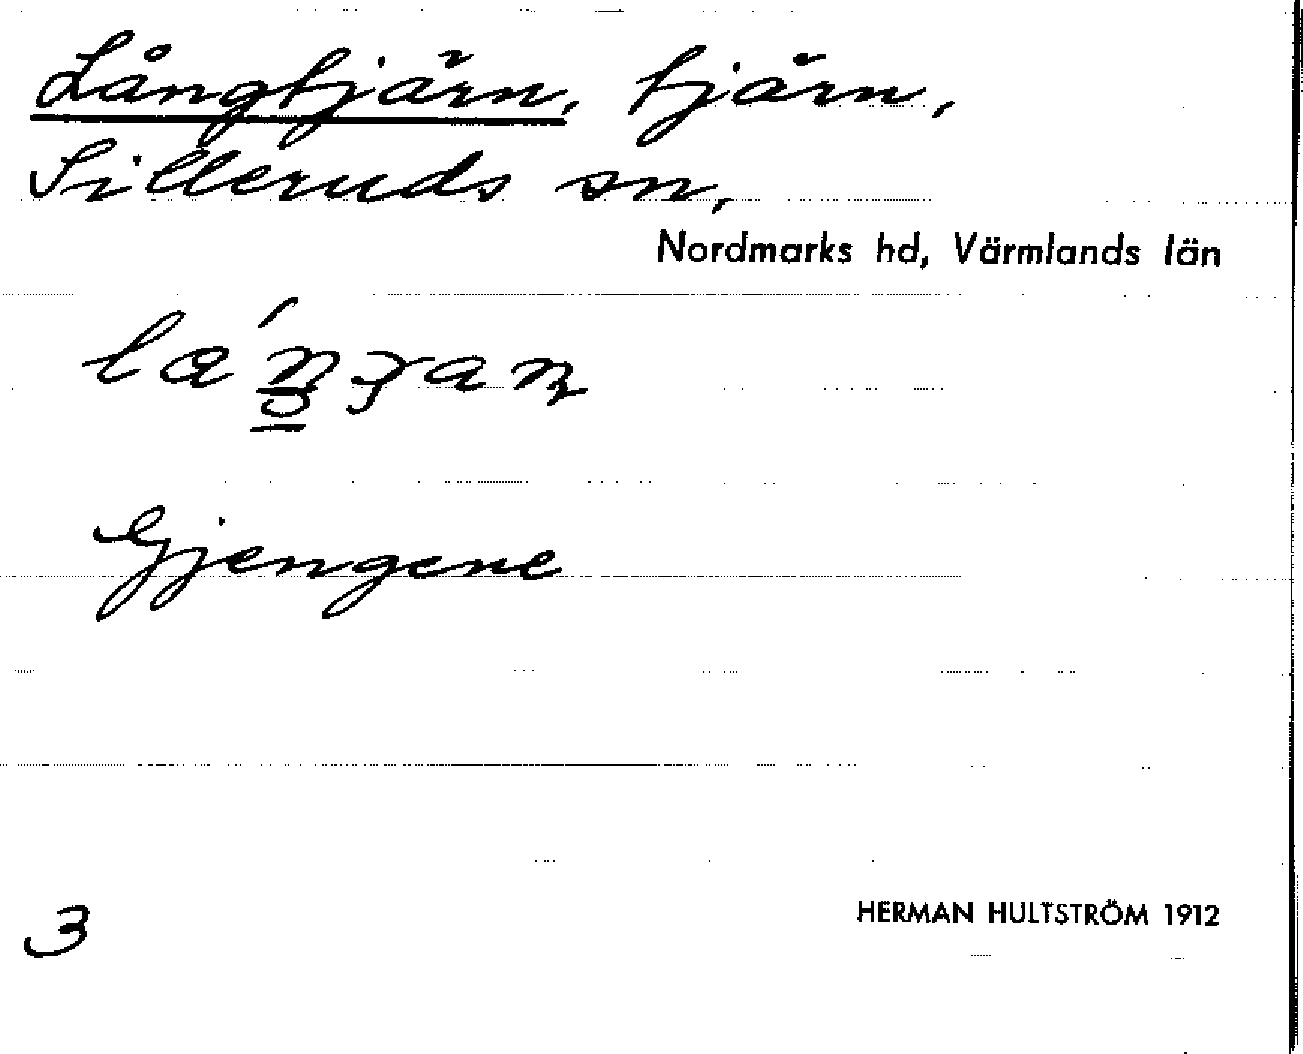 Långtjärn, tjärn,
Silleruds sn,
Nordmarks hd, Värmlands län
Gjengene
3
HERMAN HULTSTRÖM 1912